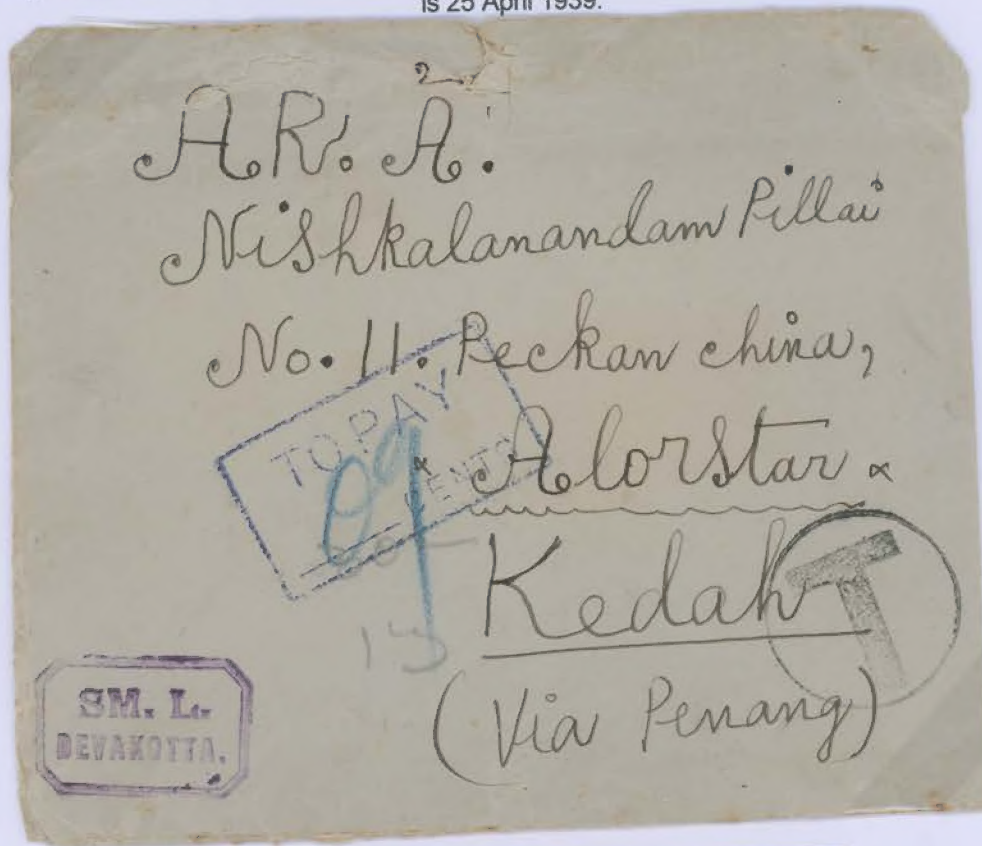 is 25 April 1939.
A.R. A.
Nishkalanandam Pillai
No. 11. Peckan china,
Alorstar
Kedah
(Via Penang)
TO PAY
CENTS
T
SM. L.
DEVAKOTTA.